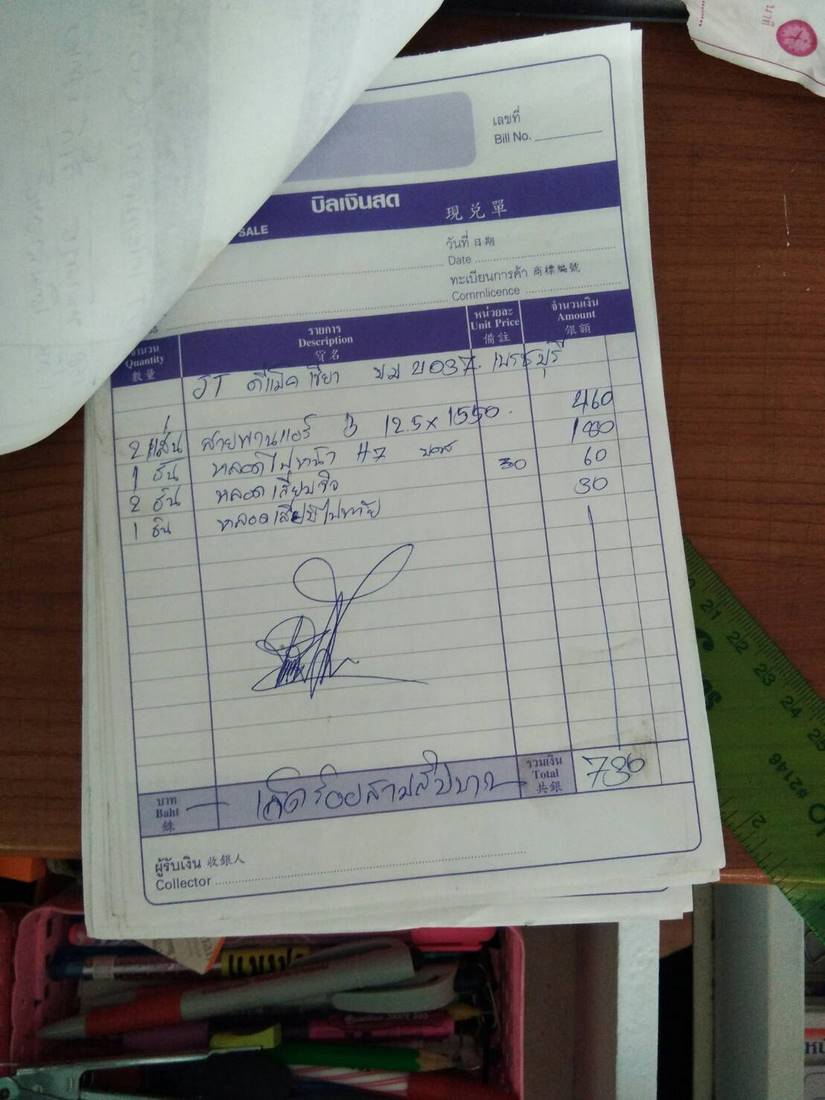 นาที
เลขที่
Bill No.
SALE บิลเงินสด 現兑單
วันที่ 日期
Date
ทะเบียนการค้า 商標編號
Commlicence
จำนวน รายการ หน่วยละ จำนวนเงิน
Quantity Description Unit Price Amount
數量 貨名 備註 銀額
JT ดีแม็ค เขียว บม 4037 เพชรบุรี
2 เส้น สายพานแอร์ B 12.5 x 1550 460
1 อัน หลอดไฟหน้า H7 180
2 อัน หลอดเสียบจิ๋ว 30 60
1 อัน หลอดเสียบไฟท้าย 30
บาท เจ็ดร้อยสามสิบบาท รวมเงิน 730
Baht Total
銖 共銀
ผู้รับเงิน 收銀人
Collector
21 22 23 24 25
#2146